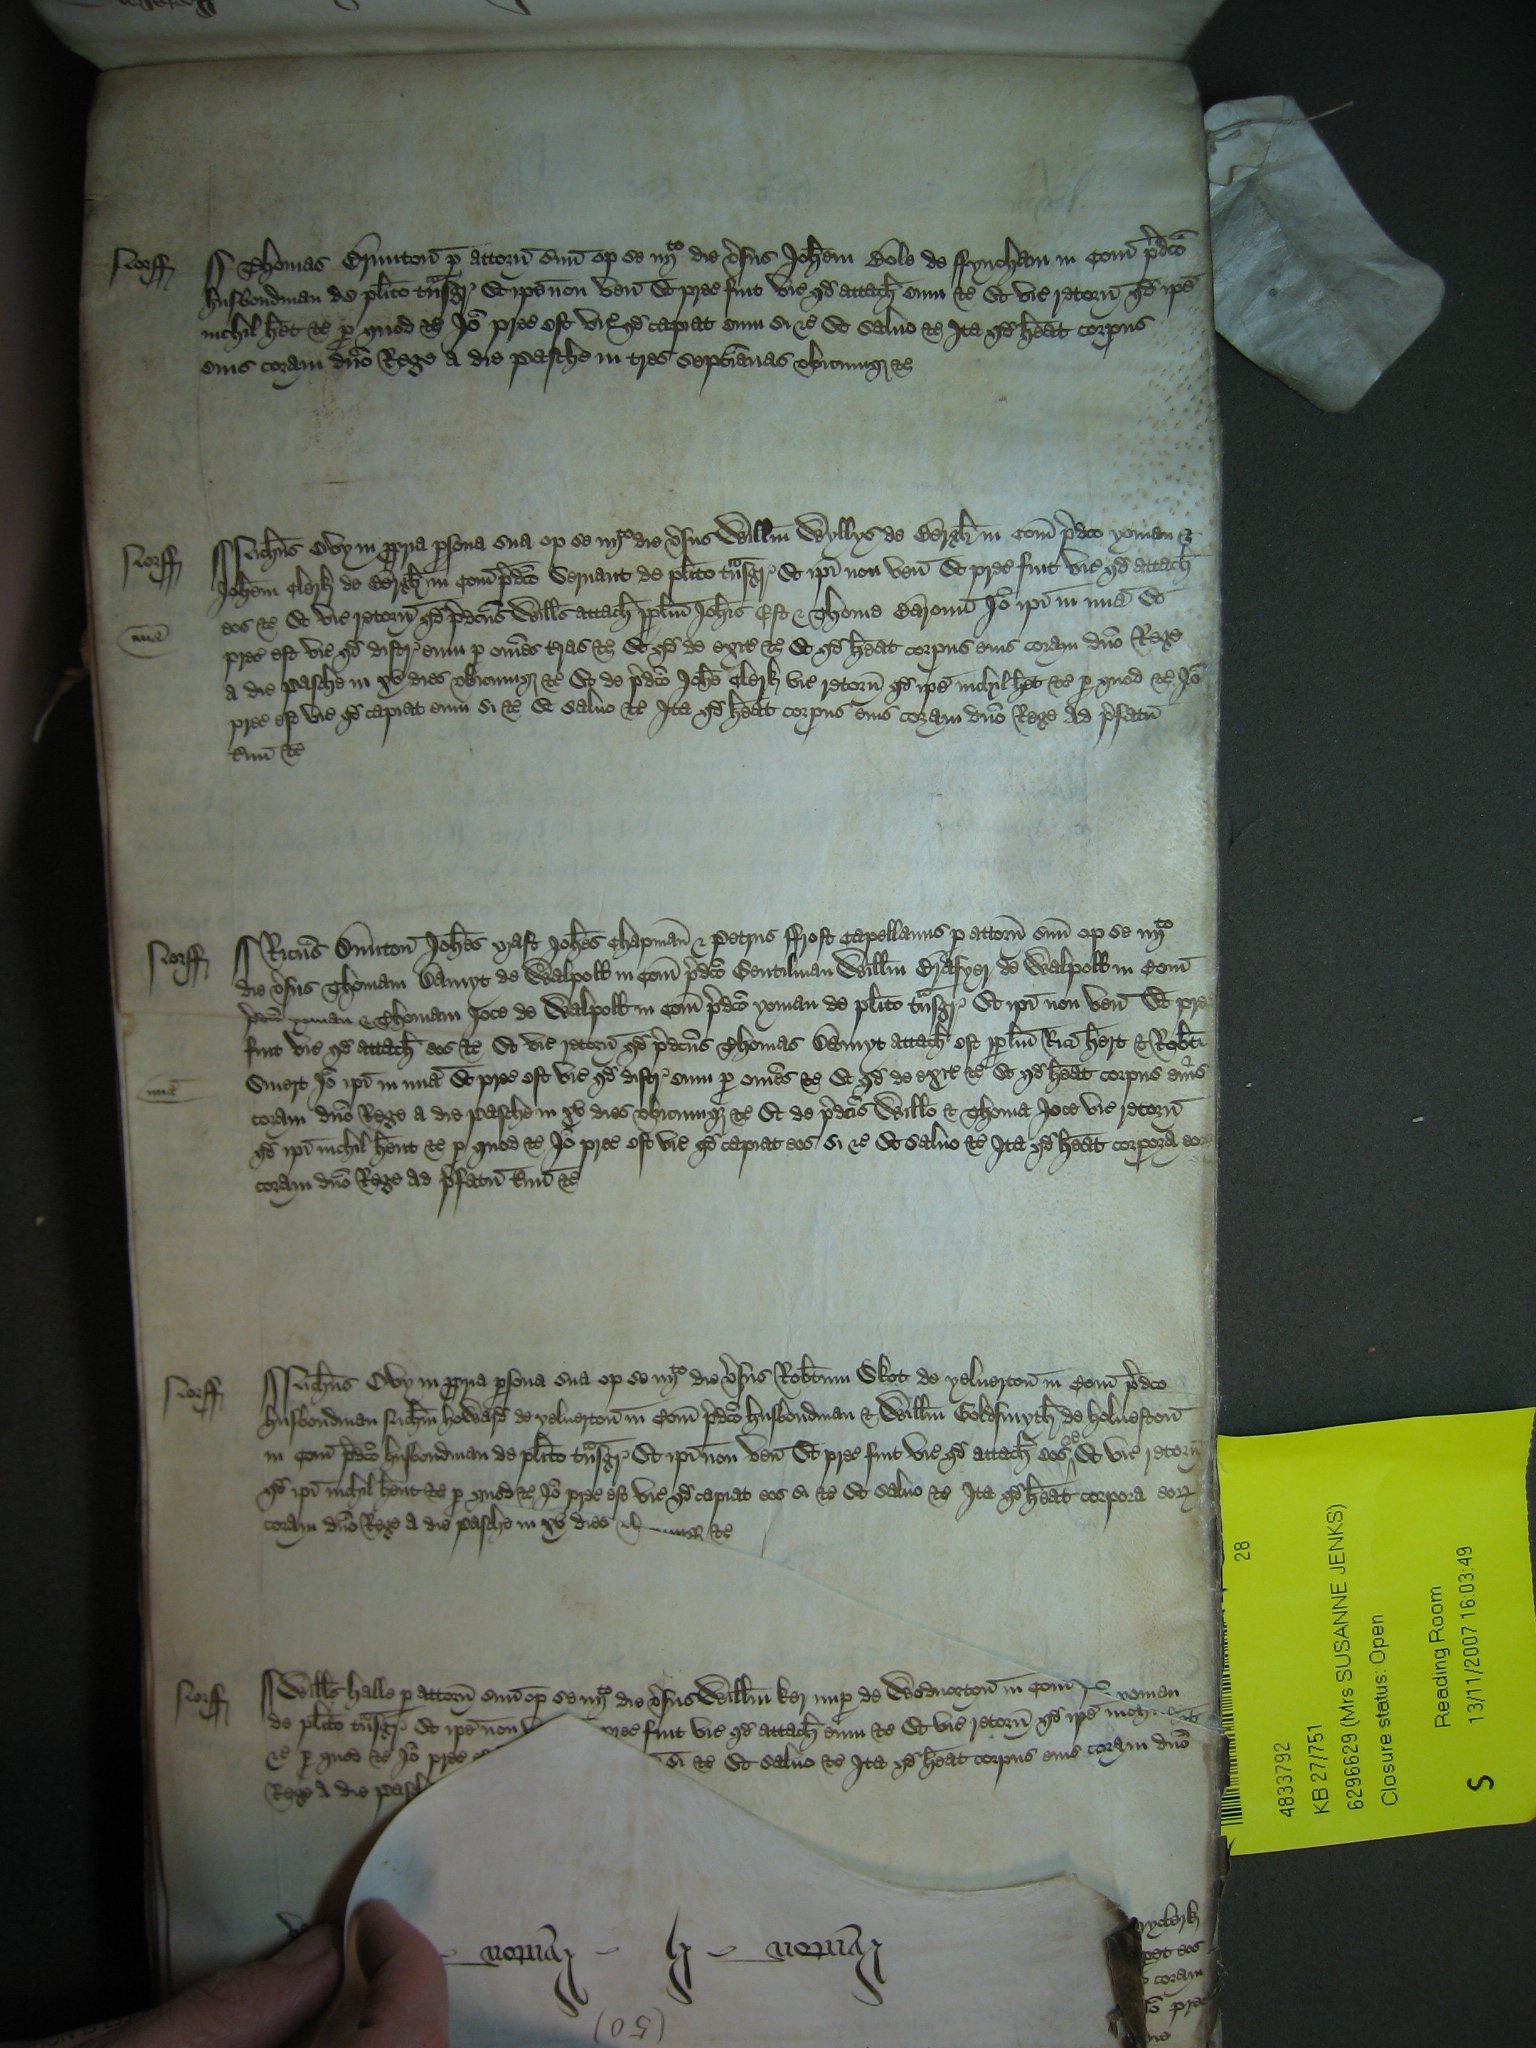 Norff Thomas Brunton p attorn suu op se iiijto die vsus Johem Bole de ffyncham in Com pdco
husbondman de plito tnsgr Et ipe non ven Et prec fuit vic qd attach eum &c Et vic retorn qd ipe
nichil het &c p quod &c Io prec est vic qd capiat eum si &c Et saluo &c Ita qd heat corpus
eius coram dno Rege a die pasche in tres septianas vbicumq &c
Norff Nichus Oby in ppria psona sua op se iiijto die vsus Willm Wyllys de Bergh in Com pdco yoman &
Johem Clerk de Bergh in Com pdco Seruant de plito tnsgr Et ipi non ven Et prec fuit vic qd attach
eos &c Et vic retorn qd pdcus Wills attach p plm Johis Est & Thome Baron Io ipi in mia Et
mia
prec est vic qd distr eum p omes tras &c Et qd de exit &c Et qd heat corpus eius coram dno Rege
a die pasche in xv dies vbicumq &c Et de pdco Johe Clerk vic retorn qd ipe nichil het &c p quod &c Io
prec est vic qd capiat eum si &c Et saluo &c Ita qd heat corpus eius coram dno Rege ad pfatu
tmu &c
Norff Ricus Johes Johes Chapman & Petrus ffrost Capellanus p attorn suu op se iiijto
die vsus Thomam de Walpoll in Com pdco Gentilman Willm de Walpoll in Com
pdco yoman & Thomam Joce de Walpoll in Com pdco yoman de plito tnsgr Et ipi non ven Et prec
fuit vic qd attach eos &c Et vic retorn qd pdcus Thomas attach est p plm Rici hert & Robti
Smert Io ipi in mia Et prec est vic qd distr eum p omes &c Et qd de exit &c Et qd heat corpus eius
mia
coram dno Rege a die pasche in xv dies vbicumq &c Et de pdcis Willo & Thoma Joce vic retorn
qd ipi nichil hent &c p quod &c Io prec est vic qd capiat eos si &c Et saluo &c Ita qd heat corpora eor
coram dno Rege ad pfatu tmu &c
Norff Nichus Oby in ppria psona sua op se iiijto die vsus Robtum Skot de yeluerton in Com pdco
husbondman Nichm howard de yeluerton in Com pdco husbondman & Willm Goldsmyth de holueston
in Com pdco husbondman de plito tnsgr Et ipi non ven Et prec fuit vic qd attach eos &c Et vic retorn
qd ipi nichil hent &c p quod &c Io prec est vic qd capiat eos si &c Et saluo &c Ita qd heat corpora eor
coram dno Rege a die pasche in xv dies &c
Norff Wills halle p attorn suu op se iiijto die vsus Willm de Wodnorton in Com yoman
de plito tnsgr Et ipe non prec fuit vic qd attach eum &c Et vic retorn qd ipe
&c p quod &c Io prec si &c Et saluo &c Ita qd heat corpus eius coram dno
Rege a die pasch
eos
coram
Io prec
(50)
28
4833792
KB 27/751
6296629 (Mrs SUSANNE JENKS)
Closure status: Open
Reading Room
13/11/2007 16:03:49
S